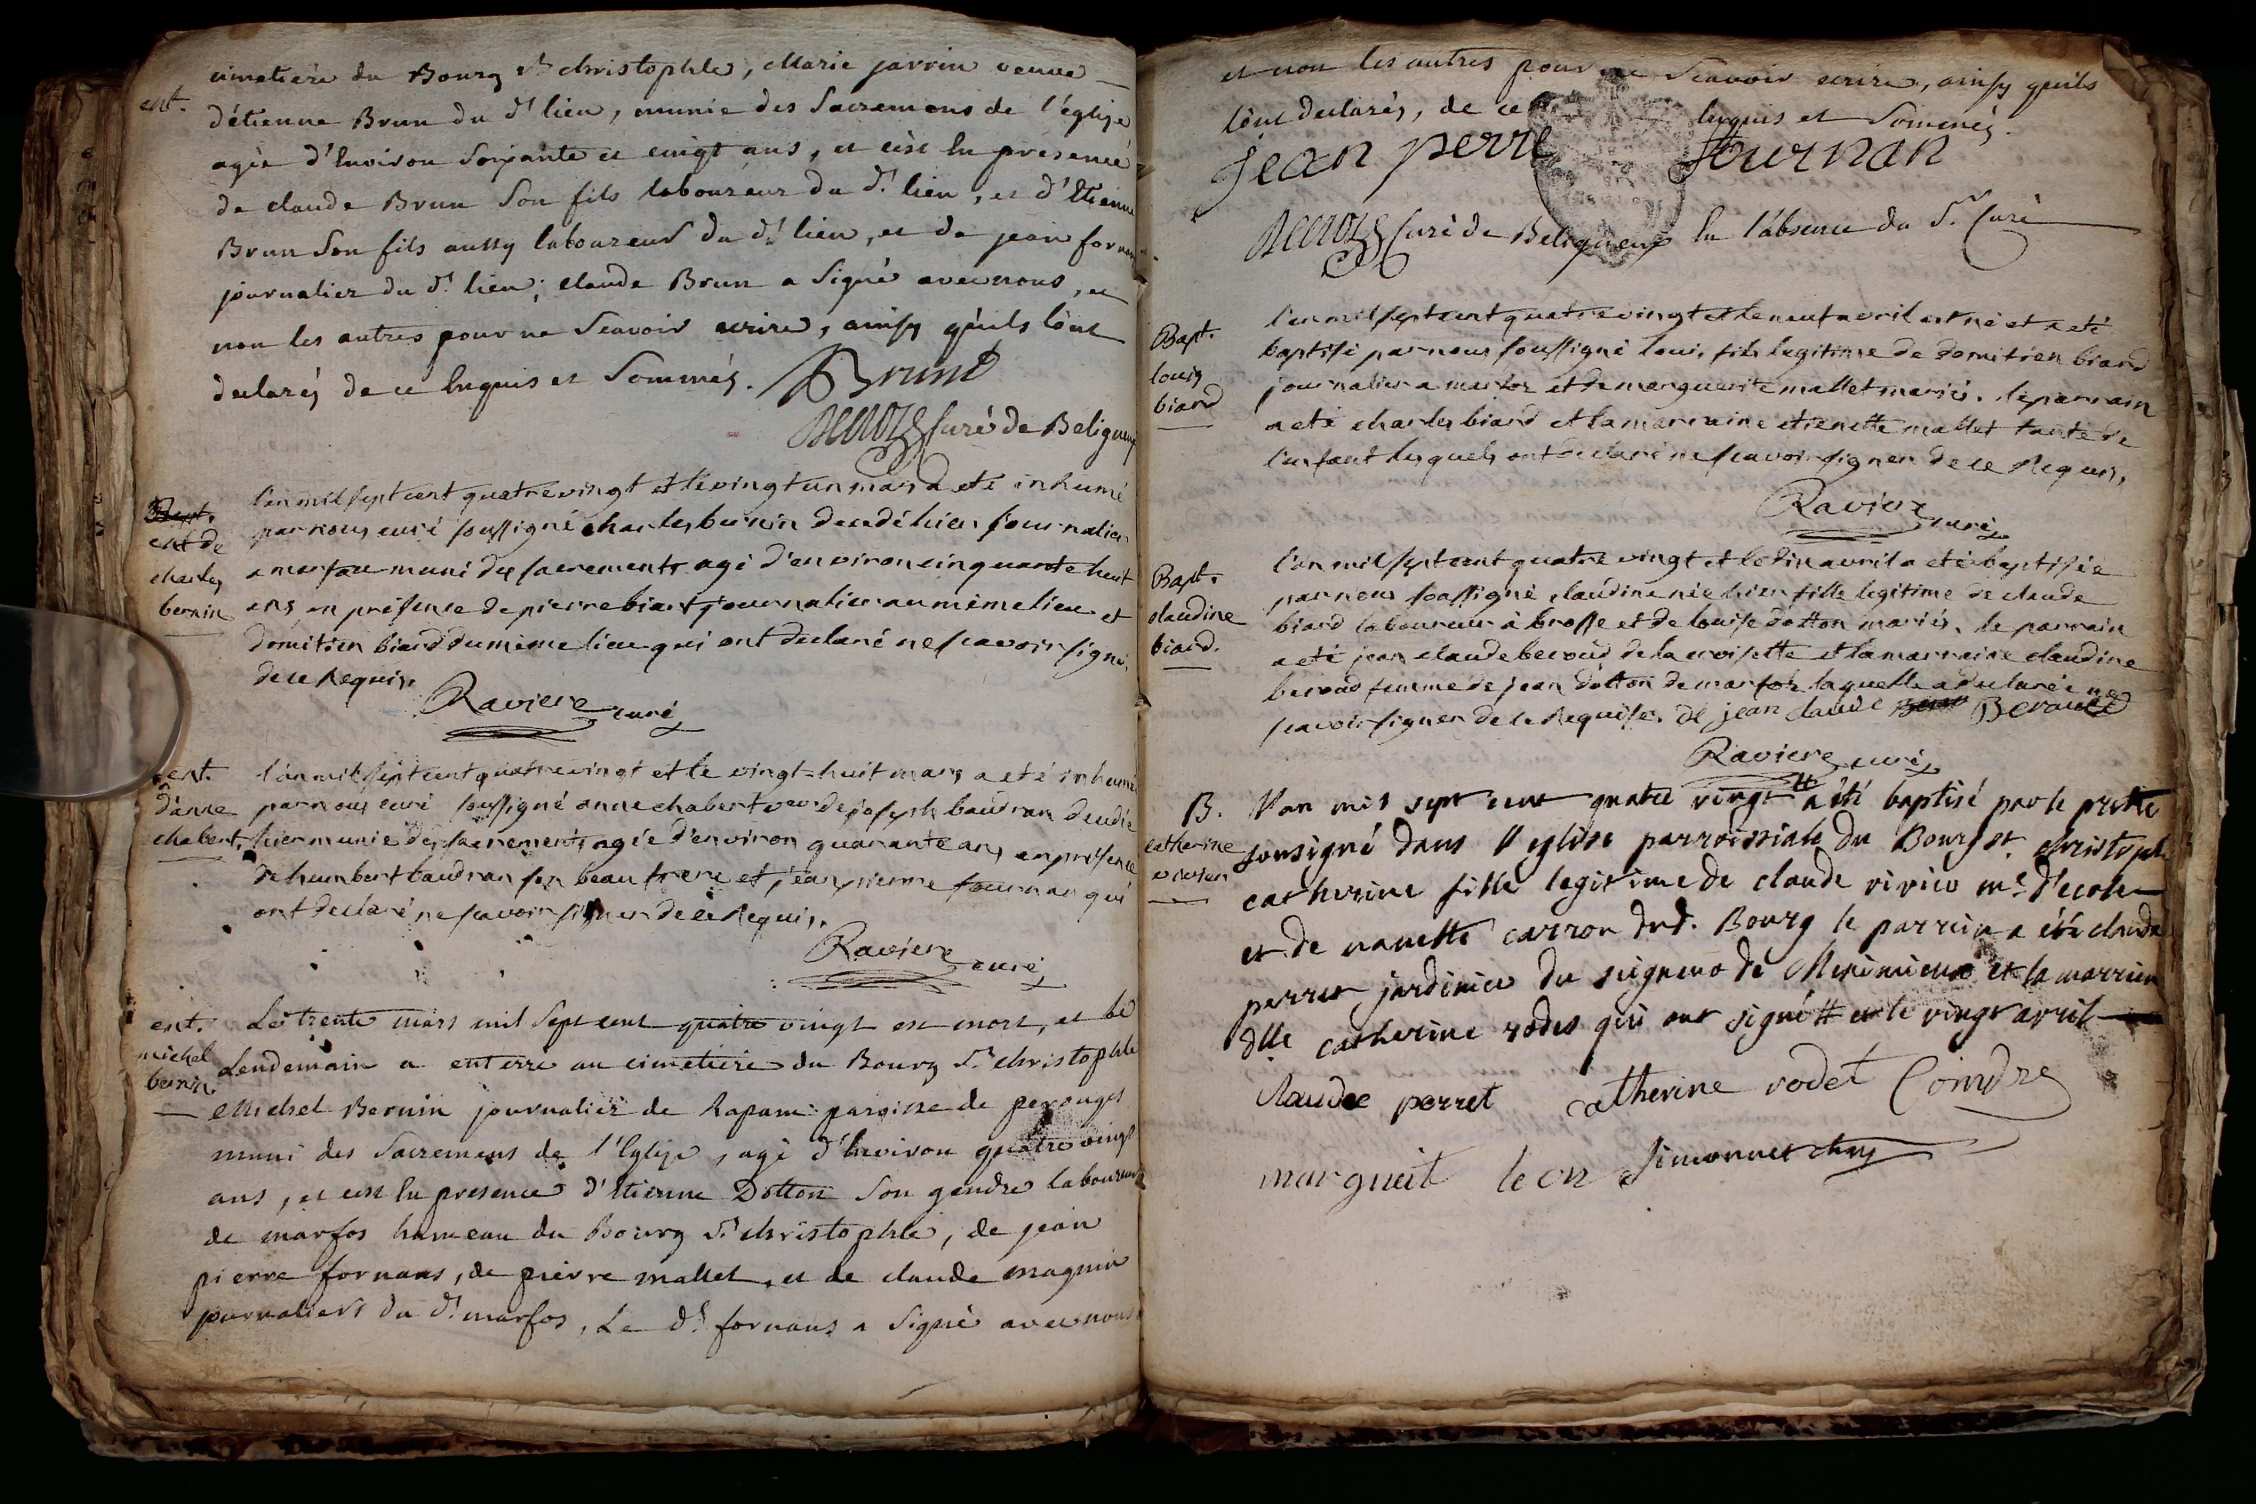 cimetiere du Bourg St christophle, Marie jarrin veuve
ent.
d'étienne Brun du dt lieu, munie des Sacremens de l'église
agée d'Environ Soixante et cingt ans, et c'est En presence
de claude Brun Son fils laboureur du dt lieu, et d'Etienne
Brun Son fils aussy laboureur du dt lieu, et de jean
journalier du dt lieu; claude Brun a Signé avec nous, et
non les autres pour ne Scavoir ecrire, ainsy qu'ils l'ont
declarés de ce Enquis et Sommés. Brund
Curé de Beligneux
ent de
charles
bernin
l'an mil sept cent quatre vingt et le vingt un mars a eté inhumé
par nous curé soussigné charles bernin decedé hier journalier
a marfou muni des sacrements agé d'environ cinquante huit
ans en présence de pierre biard journalier au même lieu et
domitien biard du même lieu qui ont declaré ne scavoir signer
de ce Requis.
Raviere curé
ent.
d'anne
chabert.
l'an mil sept cent quatre vingt et le vingt-huit mars a eté inhumée
par nous curé soussigné anne chabert veuve de joseph baudran decedée
hier munie des sacrements agée d'environ quarante ans en présence
de humbert baudran son beau frere et jean pierre fournan qui
ont declaré ne scavoir signer de ce Requis.
Raviere curé
ent.
michel
bernin
Le trente mars mil Sept cent quatre vingt est mort, et le
Lendemain a enterré au cimetiere du Bourg St christophle
Michel Bernin journalier de Rapam paroisse de perouges
muni des Sacremens de l'Eglise, agé d'Environ quatre vingt
ans, et c'est En presence d'Etienne Dotton Son gendre laboureur
de marfos hameau du Bourg St christophle, de jean
pierre fornans, de pierre mallet, et de claude magnin
journaliers du dt marfos, Le dt fornans a Signé avec nous
et non les autres pour ne Scavoir ecrire, ainsy qu'ils
l'ont declarés, de ce Enquis et Sommés.
jean perre fournan
Curé de Beligneux En l'absence du Sr Curé
Bapt.
louis
biard
l'an mil sept cent quatre vingt et le neuf avril est né et a eté
baptisé par nous soussigné louis fils legitime de domitien biard
journalier a marfoz et de marguerite mallet mariés. le parrain
a eté charles biard et la marraine etienette mallet tante de
l'enfant lesquels ont declaré ne scavoir signer de ce Requis.
Raviere curé
Bapt.
claudine
biard.
l'an mil sept cent quatre vingt et le dix avril a eté baptisée
par nous soussigné claudine née hier fille legitime de claude
biard laboureur à brosse et de louise dotton mariés. le parrain
a eté jean claude beroud de la croisette et la marraine claudine
beroud femme de jean dotton de marfoz laquelle a declarée ne
scavoir signer de ce Requise. jean claude Beraud
Raviere curé
B.
catherine
l'an mil sept cent quatre vingt # a été baptisé par le prêtre
sousigné dans l'eglise parroissiale du Bourg st. christophe
catherine fille legitime de claude me d'ecole
et de nanette carron dud. Bourg le parrein a été claude
perret jardinier du seigneur de Meximieux et la marreine
dlle catherine rodet qui ont signé # et le vingt avril
claude perret catherine rodet Comdre
marguerit leon Simonnet